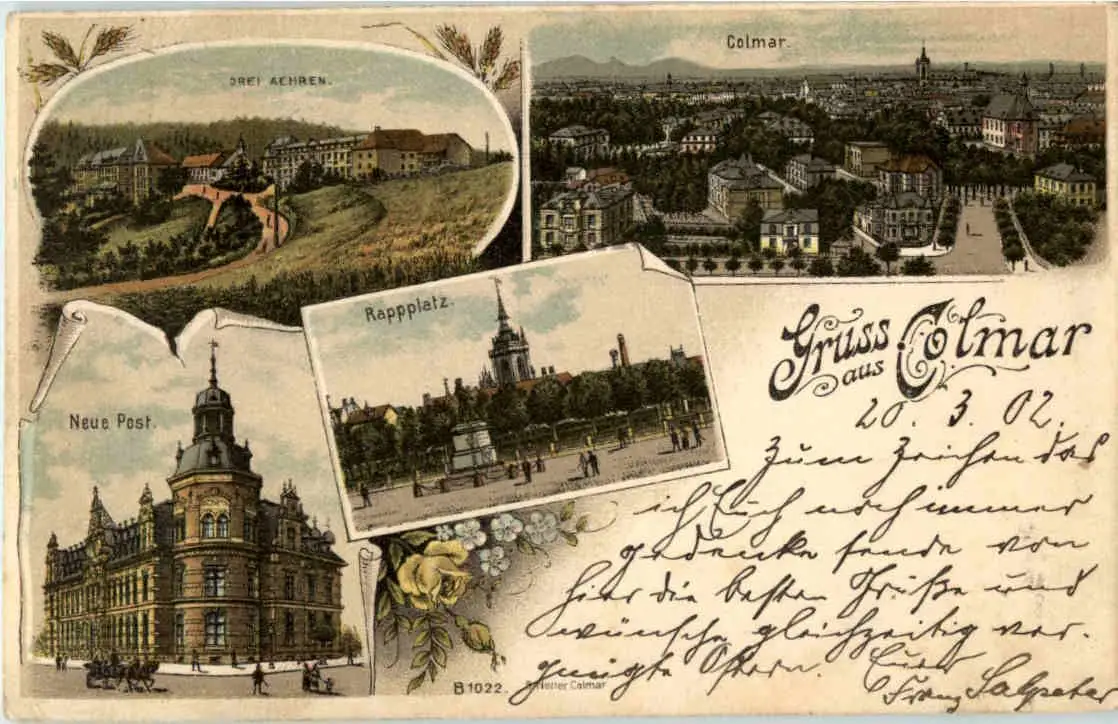 DREI AEHREN.
Colmar.
Rappplatz.
Neue Post.
Gruss aus Colmar
20. 3. 02.
Zum Zeichen das
ich Euch noch immer
gedenke sende von
hier die besten Grüße und
wünsche gleichzeitig ver-
gnügte Ostern. Euer
Franz Salpeter
B 1022.
Netter Colmar